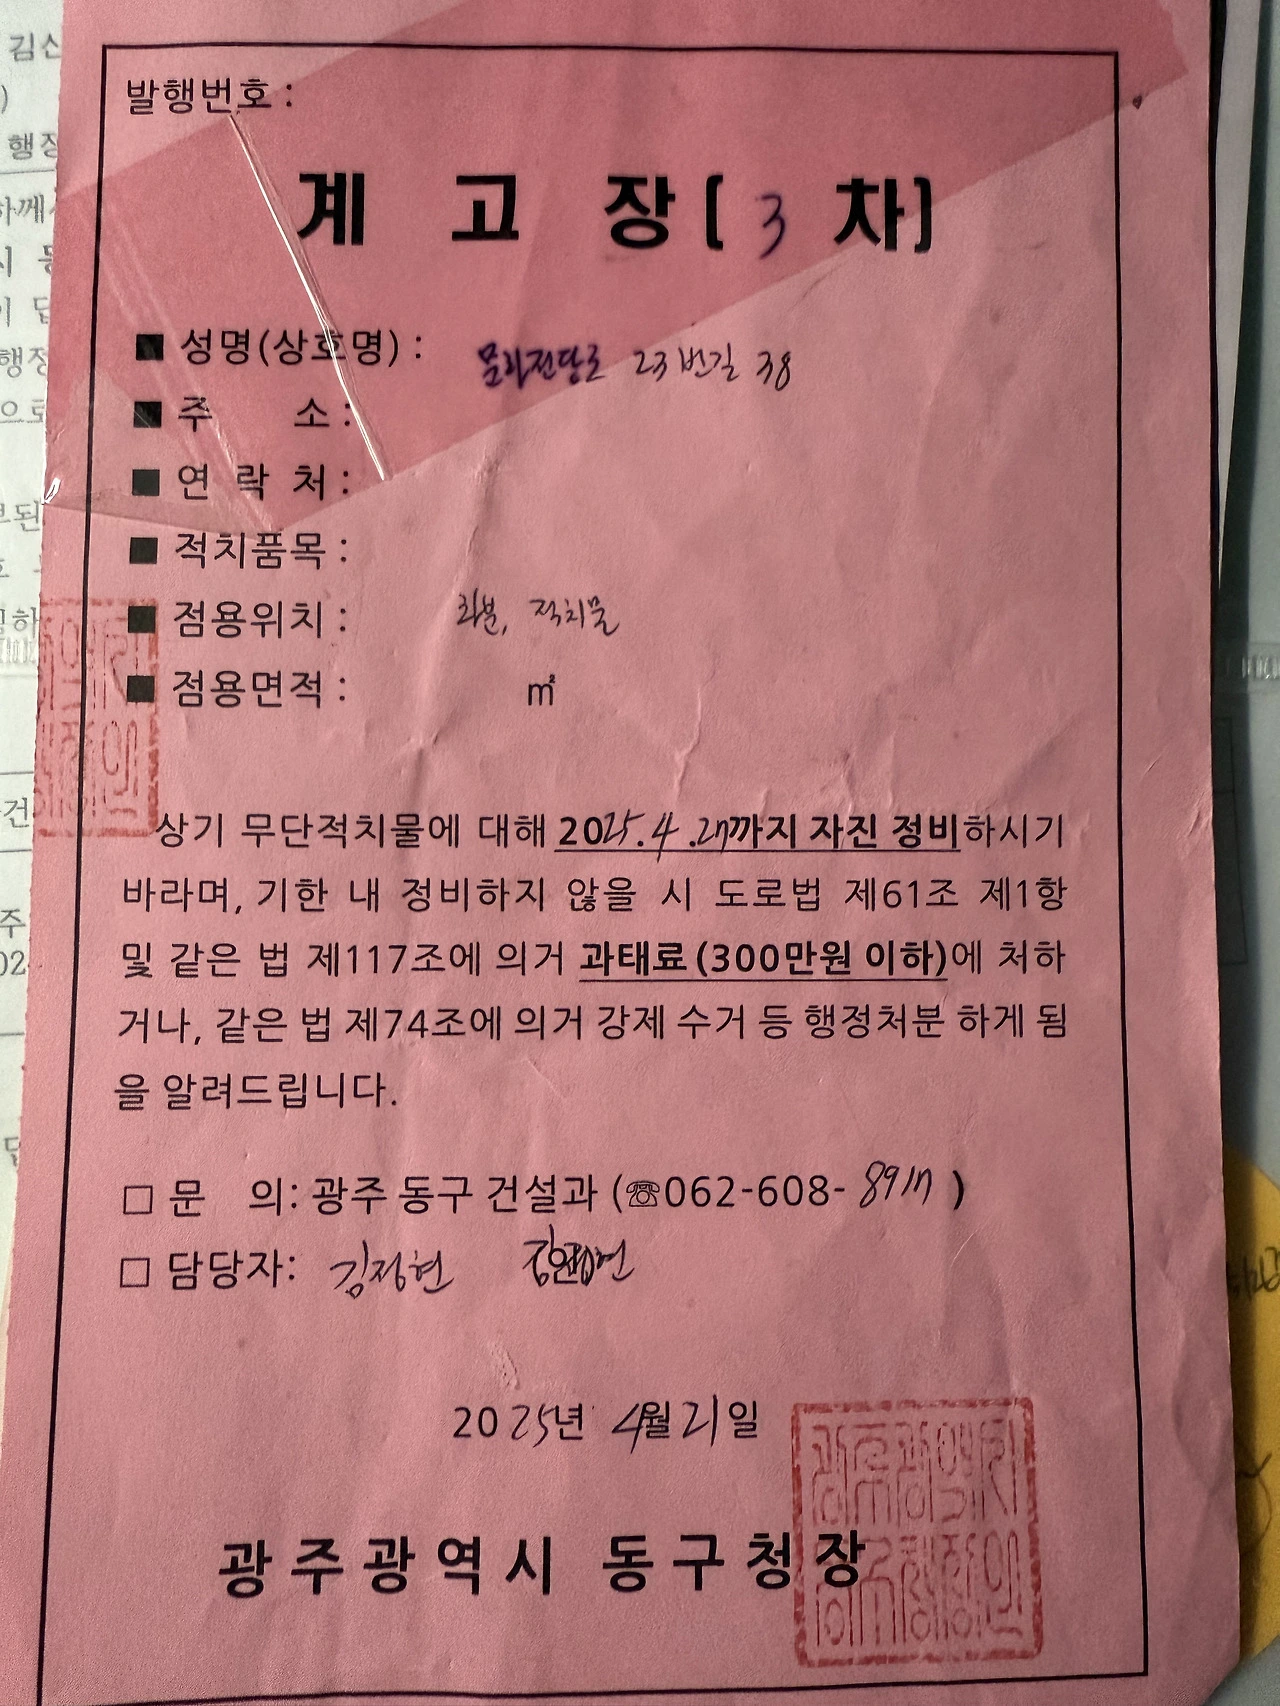 발행번호 :
계 고 장 [ 3 차]
■ 성명(상호명) : 문화전당로 23번길 38
■ 주 소 :
■ 연 락 처 :
■ 적치품목 :
■ 점용위치 : 화분, 적치물
■ 점용면적 : ㎡
상기 무단적치물에 대해 2025.4.27까지 자진 정비하시기
바라며, 기한 내 정비하지 않을 시 도로법 제61조 제1항
및 같은 법 제117조에 의거 과태료(300만원 이하)에 처하
거나, 같은 법 제74조에 의거 강제 수거 등 행정처분 하게 됨
을 알려드립니다.
□ 문 의: 광주 동구 건설과 (☏062-608-8917)
□ 담당자: 김정현
2025년 4월 21일
광주광역시 동구청장